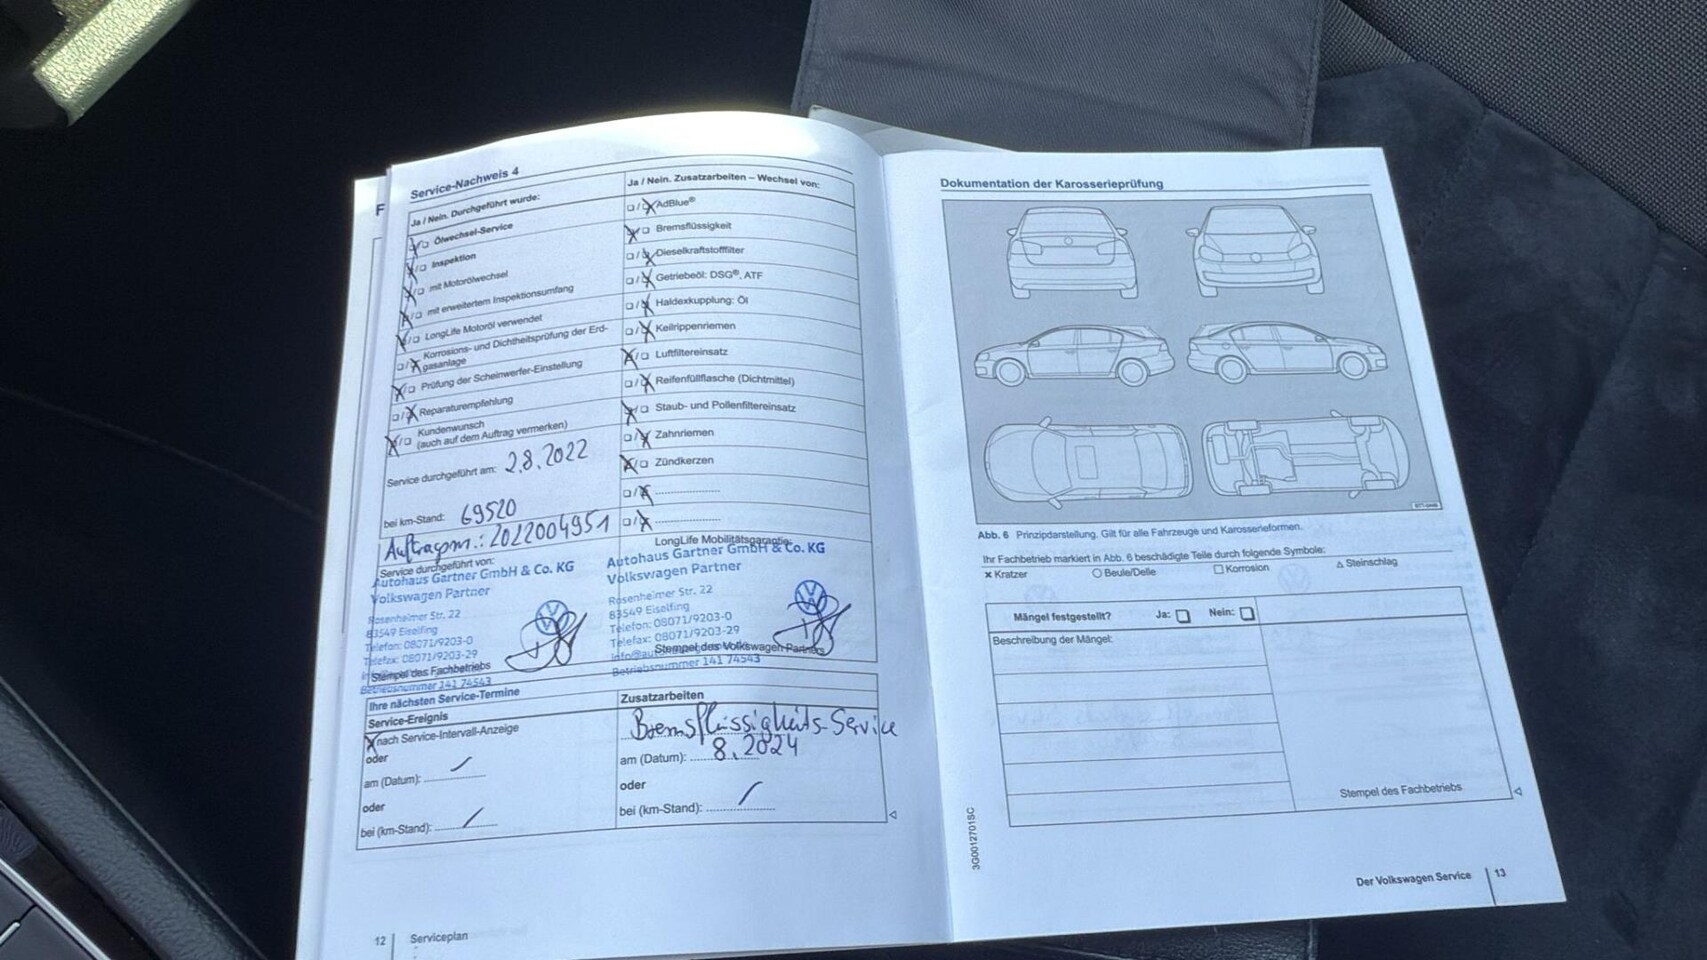 F
Service-Nachweis 4
Ja / Nein. Durchgeführt wurde:
Ölwechsel-Service
Inspektion
mit Motorölwechsel
mit erweitertem Inspektionsumfang
LongLife Motoröl verwendet
Korrosions- und Dichtheitsprüfung der Erd-
gasanlage
Prüfung der Scheinwerfer-Einstellung
Reparaturempfehlung
Kundenwunsch
(auch auf dem Auftrag vermerken)
Service durchgeführt am: 2.8.2022
bei km-Stand: 69520
Auftragsnr.: 2022004951
Service durchgeführt von:
Autohaus Gartner GmbH & Co. KG
Volkswagen Partner
Rosenheimer Str. 22
83549 Eiselfing
Telefon: 08071/9203-0
Telefax: 08071/9203-29
Stempel des Fachbetriebs
Betriebsnummer 141 74543
Ja / Nein. Zusatzarbeiten – Wechsel von:
AdBlue®
Bremsflüssigkeit
Dieselkraftstofffilter
Getriebeöl: DSG®, ATF
Haldexkupplung: Öl
Keilrippenriemen
Luftfiltereinsatz
Reifenfüllflasche (Dichtmittel)
Staub- und Pollenfiltereinsatz
Zahnriemen
Zündkerzen
LongLife Mobilitätsgarantie:
Autohaus Gartner GmbH & Co. KG
Volkswagen Partner
Rosenheimer Str. 22
83549 Eiselfing
Telefon: 08071/9203-0
Telefax: 08071/9203-29
Stempel des Volkswagen Partners
Betriebsnummer 141 74543
Ihre nächsten Service-Termine
Service-Ereignis
nach Service-Intervall-Anzeige
oder
am (Datum):
oder
bei (km-Stand):
Zusatzarbeiten
Bremsflüssigkeits-Service
am (Datum): 8.2024
oder
bei (km-Stand):
12 Serviceplan
Dokumentation der Karosserieprüfung
Abb. 6 Prinzipdarstellung. Gilt für alle Fahrzeuge und Karosserieformen.
Ihr Fachbetrieb markiert in Abb. 6 beschädigte Teile durch folgende Symbole:
Kratzer Beule/Delle Korrosion Steinschlag
Mängel festgestellt? Ja: Nein:
Beschreibung der Mängel:
Stempel des Fachbetriebs
3G0012701SC
Der Volkswagen Service 13